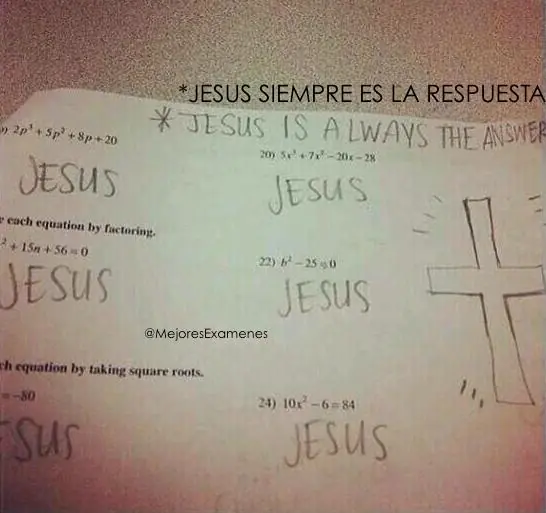 *JESUS SIEMPRE ES LA RESPUESTA
* JESUS IS ALWAYS THE ANSWER
9) 2p³ + 5p² + 8p + 20
20) 5x³ + 7x² − 20x − 28
JESUS
JESUS
each equation by factoring.
² + 15n + 56 = 0
22) b² − 25 = 0
JESUS
JESUS
@MejoresExamenes
ch equation by taking square roots.
= −80
24) 10x² − 6 = 84
ESUS
JESUS